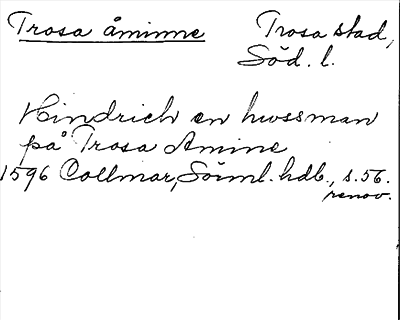 Trosa åminne Trosa stad,
Söd. l.
Hindrich en hwssman
på Trosa Amine
1596 Collmar, Sörml. hdb., s. 56.
renov.